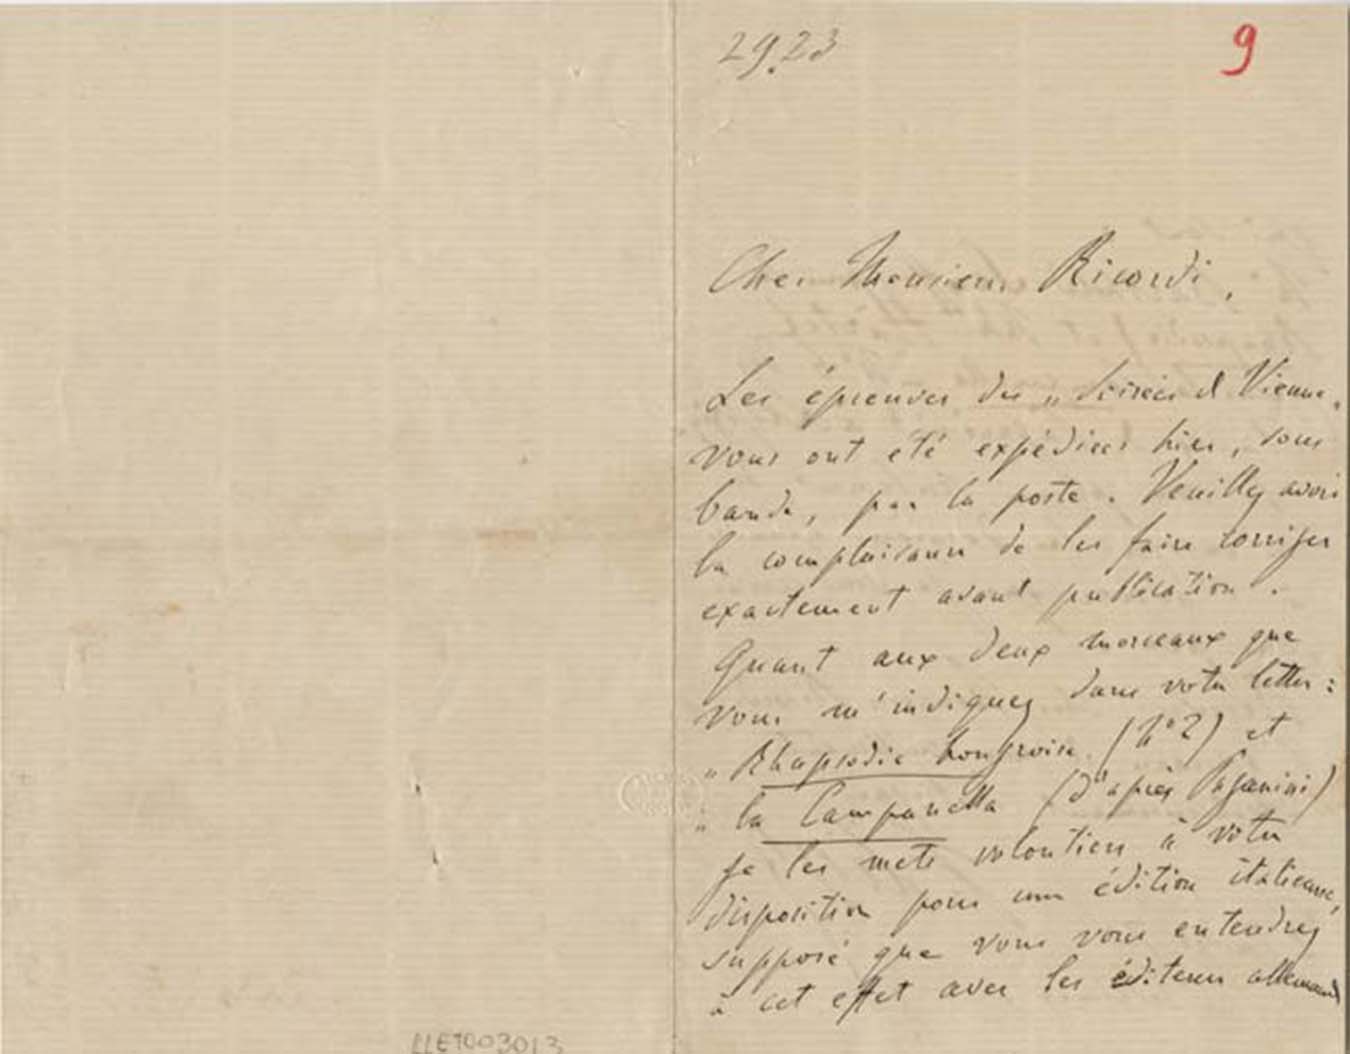 29.23
9
Cher Monsieur Ricordi,
Les épreuves des „Soirées de Vienne„
vous ont été expédiées hier, sous
bande, par la poste. Veuillez avoir
la complaisance de les faire corriger
exactement avant publication.
Quant aux deux morceaux que
vous m'indiquez dans votre lettre:
„Rhapsodie hongroise (No 2) et
„la Campanella (d'après Paganini)
je les mets volontiers à votre
disposition pour une édition italienne,
supposé que vous vous entendrez
à cet effet avec les éditeurs allemands
LLET003013